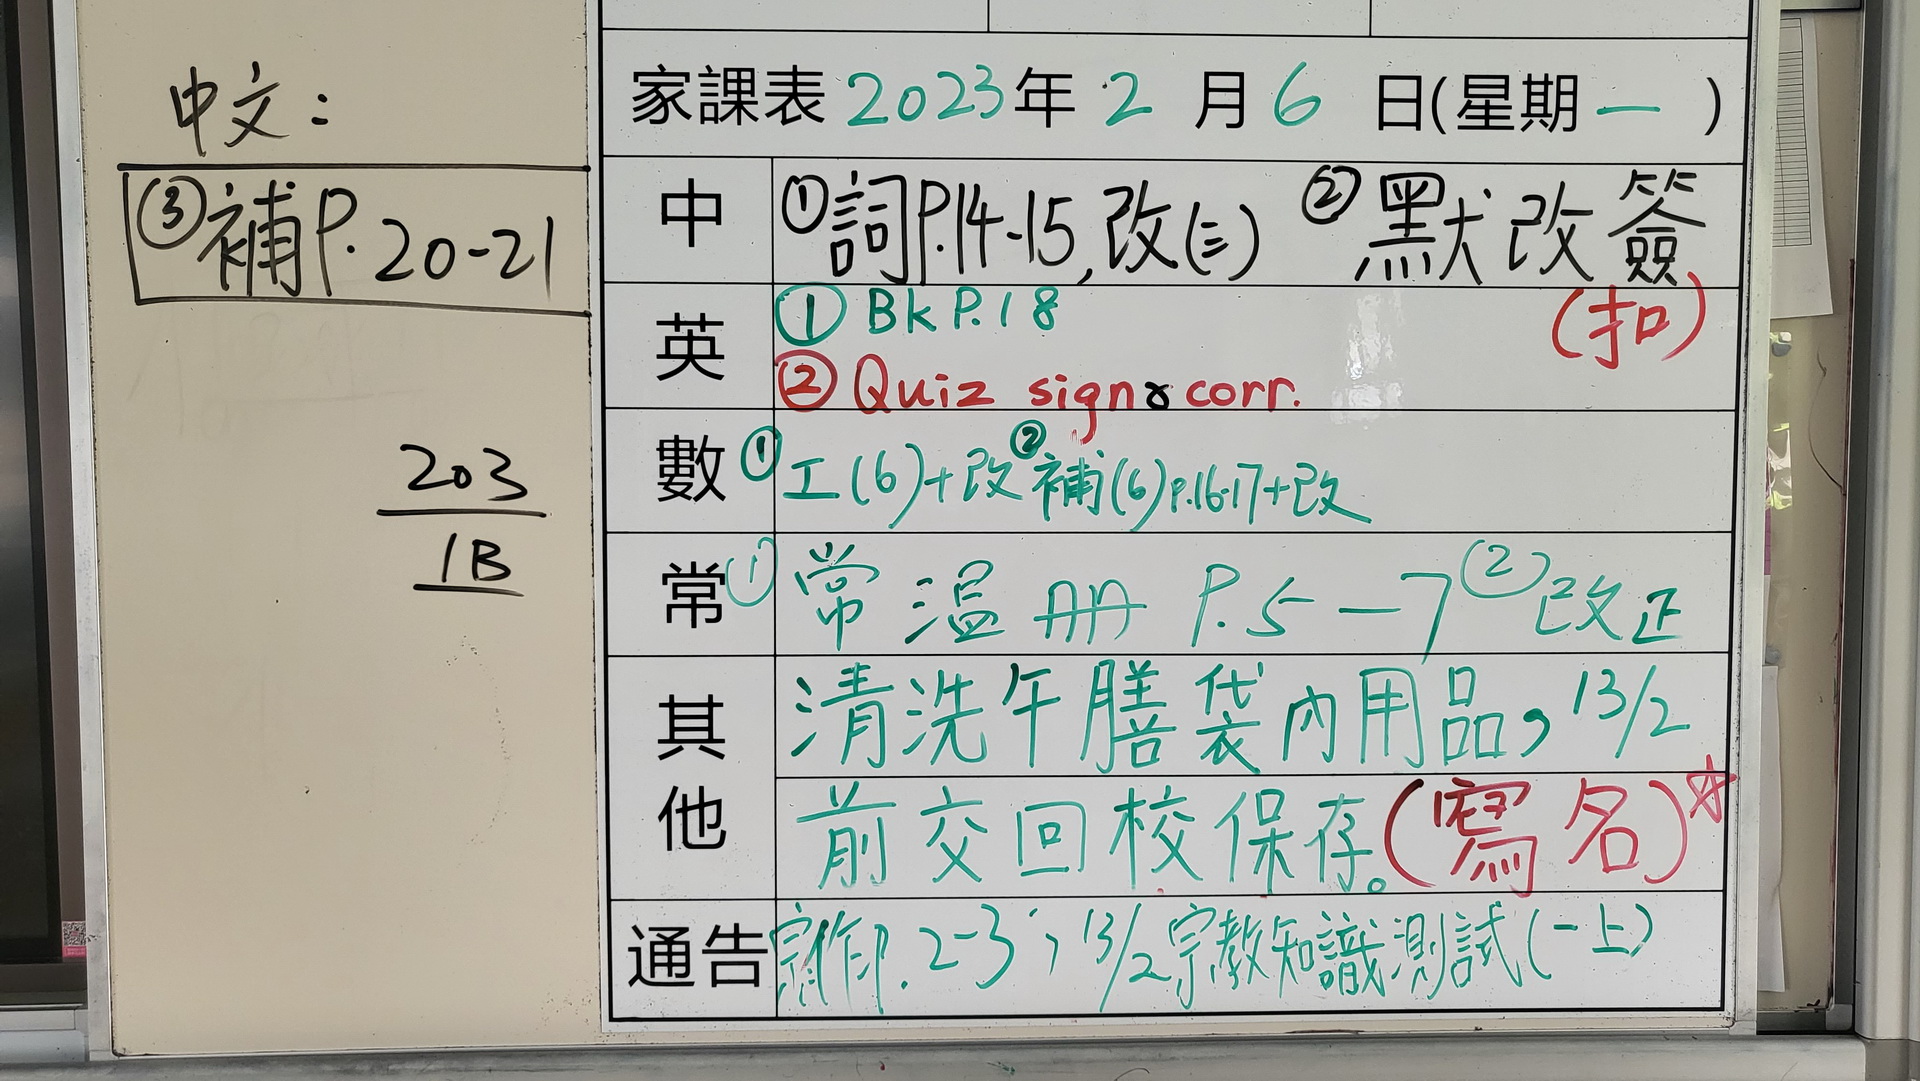 中文：
③補P.20-21
203
1B
家課表 2023年 2 月 6 日(星期一 )
中 ①詞P.14-15,改(三) ②默改簽
英 ①BK P.18 (扣)
②Quiz sign & corr.
數 ①工(6)+改 ②補(6)P.16-17+改
常 ①常溫册 P.5—7 ②改正
其他 清洗午膳袋內用品，13/2
前交回校保存。(寫名)☆
通告 宗作P.2-3；13/2宗教知識測試(一上)